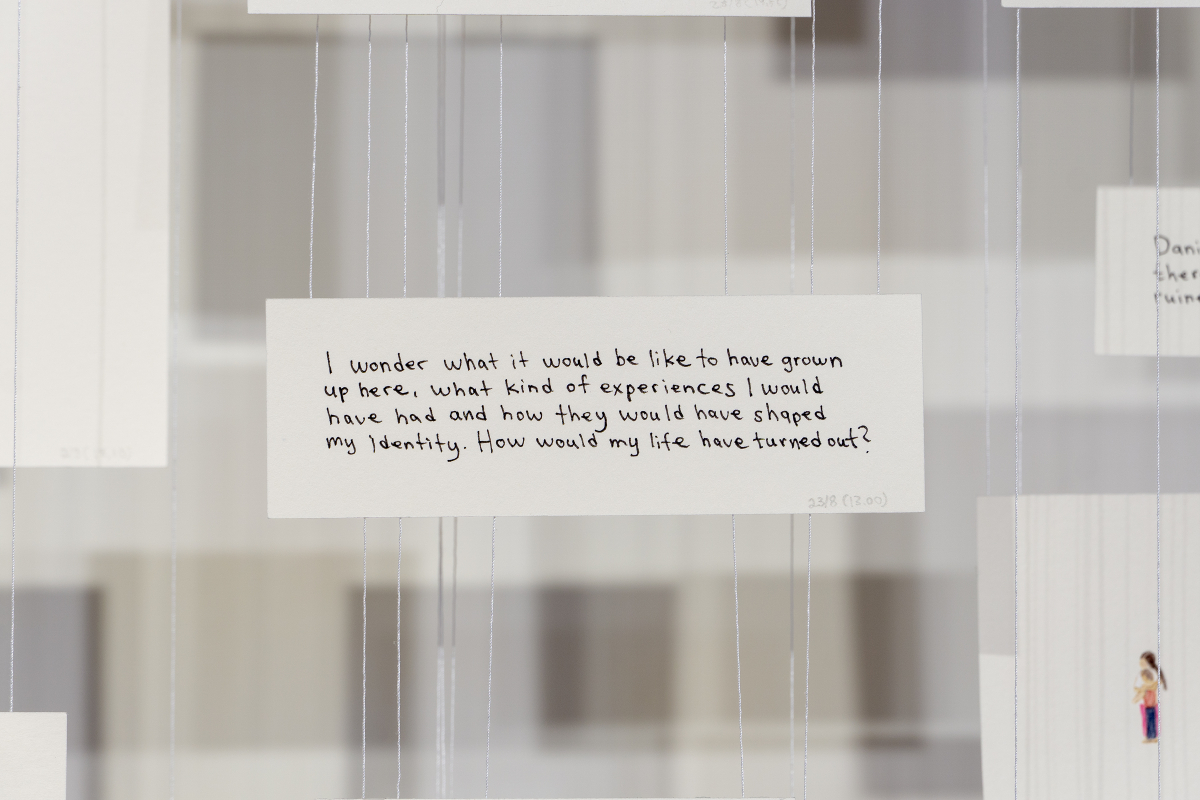 I wonder what it would be like to have grown
up here, what kind of experiences I would
have had and how they would have shaped
my identity. How would my life have turned out?
23/8 (13.00)